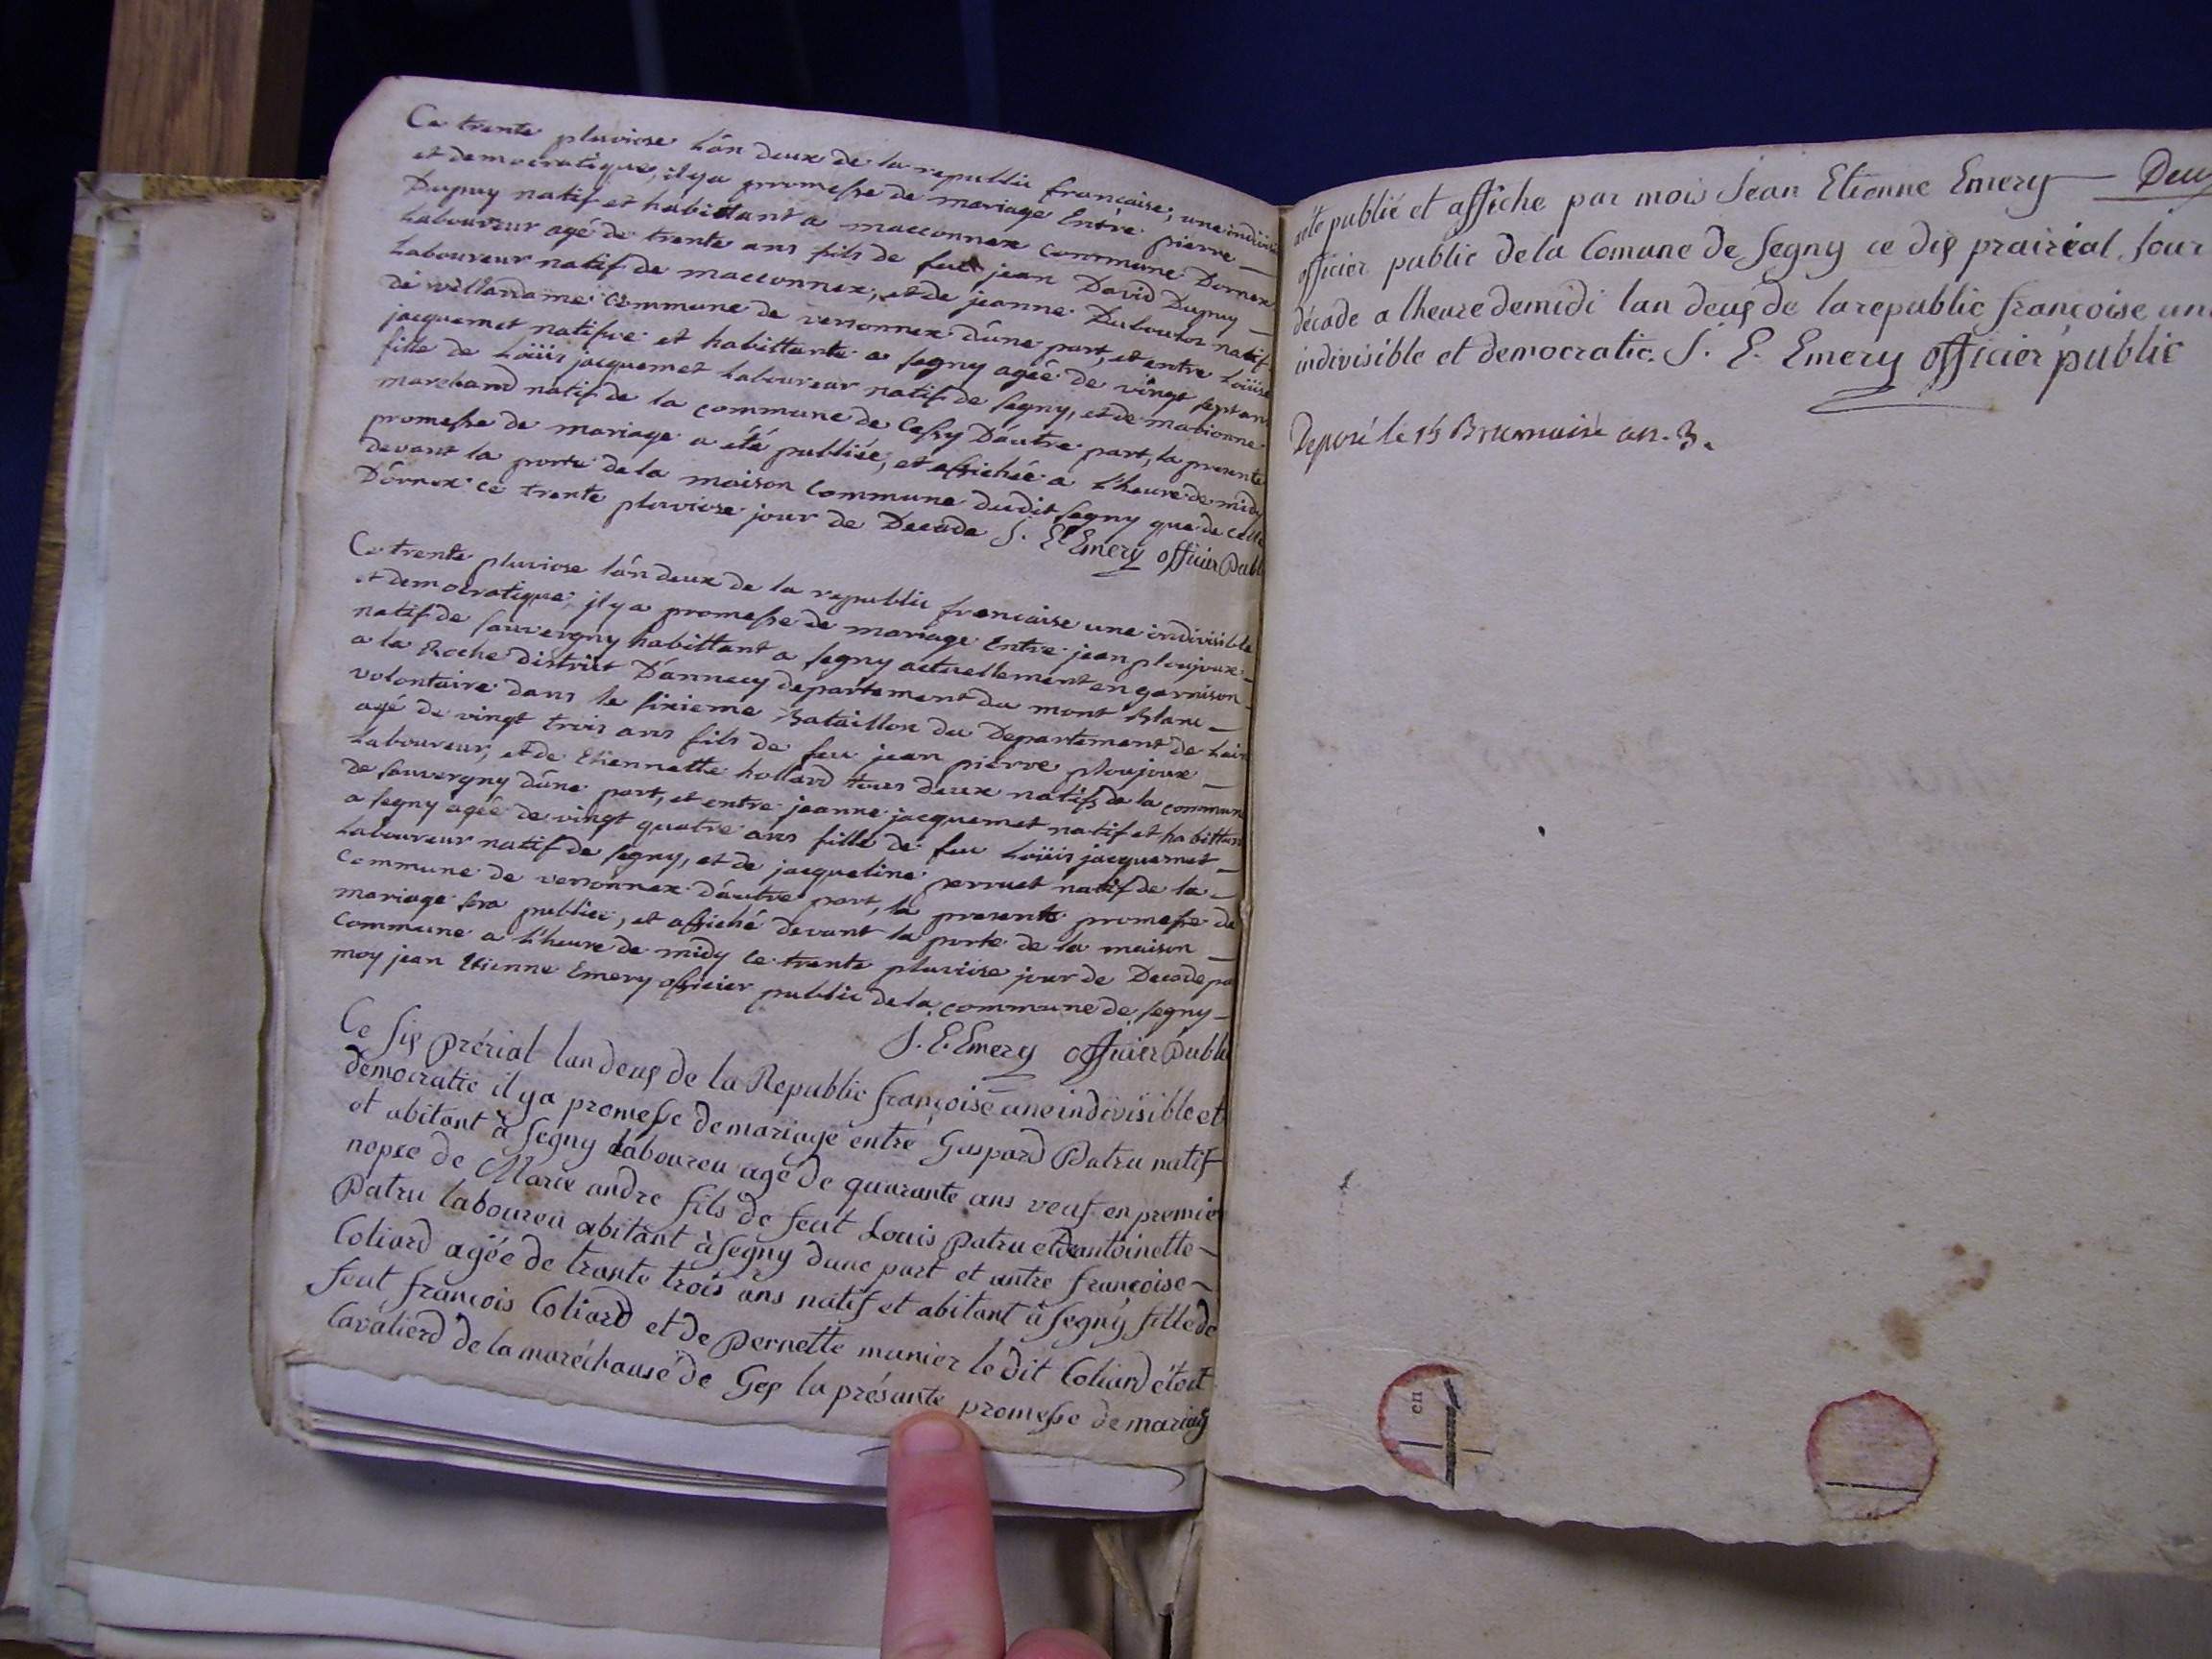 Ce trente pluviose l'ân deux de la republic francaise, une indivisi
et democratique, il y a promesse de mariage Entre pierre —
Dupuy natif et habittant a macconnex commune Dornex
Laboureur agé de trente ans fils de feu jean David Dupuy —
Laboureur natif de macconnex, et de jeanne Duboulos natif
de villardame commune de versonnex d'ûne part, et entre Loüise
jacquemet natifve et habittante a segny ageé de vingt sept ans
fille de Loüis jacquemet Laboureur natif de segny, et de marionne
marchand natif de la commune de Cessy D'áutre part, la presente
promesse de mariage a été publiée, et affichée a l'heure de midy
devant la porte de la maison commune dudit segny que de celle
D'órnex ce trente pluviose jour de Decade J. E Emery officier Publ
Ce trente pluviose l'ân deux de la republic francaise une indivisible
et democratique, il y a promesse de mariage Entre jean ploujoux —
natif de sauvergny habittant a segny actuellement en garnison —
a la Roche district D'ánnecy departement du mont Blanc —
volontaire dans le sixieme Bataillon du Departement de Lain
agé de vingt trois ans fils de feu jean pierre ploujoux —
Laboureur, et de Etiennette hollard tous deux natifs de la commun
de sauvergny d'ûne part, et entre jeanne jacquemet natif et habittan
a segny ageé de vingt quatre ans fille de feu Loüis jacquemet —
Laboureur natif de segny, et de jacqueline perruet natif de la —
Commune de versonnex d'áutre part, la presente promesse de
mariage sera publiée, et affiché devant la porte de la maison —
Commune a l'heure de midy le trente pluviose jour de Decade pa
moy jean Etienne Emery officier public de la commune de segny —
J. E. Emery officier Publi
Ce six prérial lan deux de la Republic françoise une indivisible et
démocratic il y a promesse de mariage entre Gaspard Patru natif
et abitant à Segny laboureu agé de quarante ans veuf en premier
nopce de Marie andre fils de feut Louis Patru et de antoinette —
Patru laboureu abitant à Segny dune part et antre françoise —
Coliard agée de trante trois ans natif et abitant à Segny fille de
feut françois Coliard et de pernette munier le dit Coliard étoit
Cavalierd de la maréchausé de Gex la présante promesse de mariag
aété publié et affiche par mois Jean Etienne Emery — Deux
officier public de la Comune de Segny ce dix prairéal Jour
décade a lheure de midi lan deux de la republic françoise un
indivisible et democratic. J. E. Emery officier public
Deposé le 15 Brumaire an. 3.
en